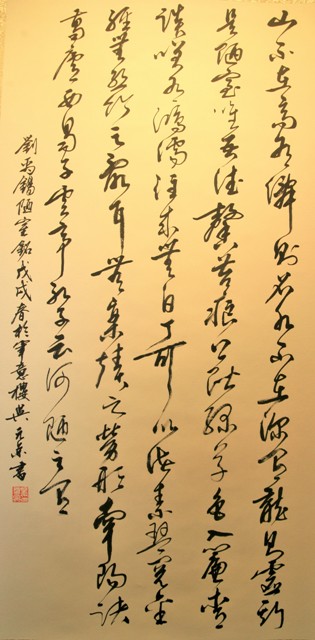 山不在高有僊則名水不在深有龍則靈斯
是陋室唯吾德馨苔痕上階綠草色入簾青
談笑有鴻儒往來無白丁可以調素琴閱金
經無絲竹之亂耳無案牘之勞形南陽諸
葛廬西蜀子雲亭孔子云何陋之有
劉禹錫陋室銘戊戌春於意樓元書